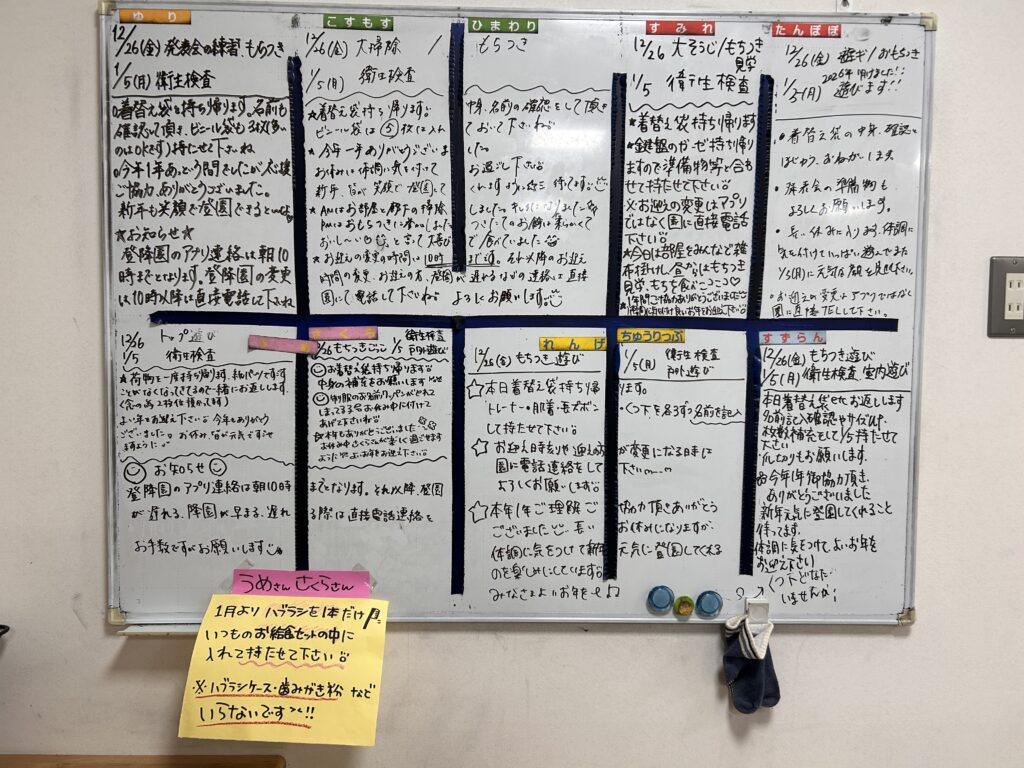 ゆり
12/26(金) 発表会の練習、もちつき
1/5(月) 衛生検査
着替え袋を持ち帰ります。名前も
確認して頂き、ビニール袋も3枚(多い
のはOKです)持たせて下さいね
今年1年あっという間でしたが大変
ご協力ありがとうございました。
新年も笑顔で登園できるといいな
★お知らせ★
登降園のアプリ連絡は朝10
時までとなります。登降園の変更
は10時以降は直接電話して下さいね
こすもす
12/26(金) 大掃除
1/5(月) 衛生検査
★着替え袋持ち帰ります
ビニール袋は⑤枚は入れ
★今年一年ありがとうございま
お休みに体調に気を付けて
新年、皆が笑顔で登園して
★AMはお部屋と廊下の掃除
PMはおもちつきに参加しました
おいしーいと言って大喜び
★お迎えの変更の時間は10時
時間の変更、お迎えの方、登園が
園にて電話して下さいね
ひまわり
もちつき
中身、名前の確認をして頂き
ておいて下さいね
した。
お過ごし下さい
くれますように 待ってます。
しました。
ついたてのお餅は柔らかくて
で食べていました
までです。それ以降のお迎え
遅れるなどの連絡は直接
よろしくお願いします。
すみれ
12/26 大そうじ/もちつき
見学
1/5 衛生検査
★着替え袋持ち帰ります
★鍵盤のガーゼ持ち帰り
ますので準備物等と合わ
せて持たせて下さい
※お迎えの変更はアプリ
ではなく園に直接電話
下さい
★今日は部屋をみんなと雑
巾掛けし、昼からはもちつき
見学、もちを食べニコニコ♡
1年間ご協力ありがとうございました
たんぽぽ
12/26(金) 遊ギ/おもちつき
2026年 明けました!!
1/5(月) 遊びます!!
・着替え袋の中身、確認と
ほじゅう、おねがいします。
・発表会の準備物も
よろしくお願いします。
・長い休みに入ります。体調に
気を付けていっぱい遊んでまた
1/5(月)に元気な顔を見せて下さい。
・お迎えの変更はアプリではなく
園に直接TELして下さい。
12/26 トップ遊び
1/5 衛生検査
★荷物を一度持ち帰ります。紙パンツですごす
ことがなくなってきてるので一緒にお返しします。
よい年をお迎え下さい 今年もありがとう
ございました。お休み、皆が元気ですごせ
ますように
お知らせ
登降園のアプリ連絡は朝10時
が遅れる、降園が早まる、遅れ
お手数ですがお願いします
さくら
12/26 もちつきごっこ 1/5 衛生検査
戸外遊び
お着替え袋持ち帰ります
中身の補充をお願いします
制服のお名前ワッペンがとれて
しまってる子もお休み中に付けて
あげて下さいね
本年もありがとうございました
お休み中さくらさんが楽しく過ごせます
ように よいお年をお迎え下さい
までとなります。それ以降、登園
る際は直接電話連絡を
れんげ
12/26(金) もちつき遊び
☆本日着替え袋持ち帰
トレーナー・肌着・長ズボン
して持たせて下さい
☆お迎え日時刻や迎えの方
園に電話連絡をして
よろしくお願いします
☆本年1年ご理解ご
ございました 長い
体調に気をつけて新年
のを楽しみにしています。
みなさまよいお年を〜♪
ちゅうりっぷ
1/5(月) 衛生検査
戸外遊び
ります。
・くつ下を名まず、名前を記入
が変更になる時は
下さい
協力頂きありがとう
お休みになりますが
元気に登園してくれる
すずらん
12/26(金) もちつき遊び
1/5(月) 衛生検査、室内遊び
本日着替え袋etcお返しします
名前記入確認やサイズUP、
枚数補充をして1/5持たせて
下さい
お願いします。
今年1年御協力頂き
ありがとうございました
新年元気に登園してくれること
待ってます。
体調に気をつけてよいお年を
お迎え下さい
くつ下どなたか
いませんか?
うめさん さくらさん
1月より ハブラシを1本だけ
いつものお給食セットの中に
入れて持たせて下さい
※ハブラシケース・歯みがき粉など
いらないです!!